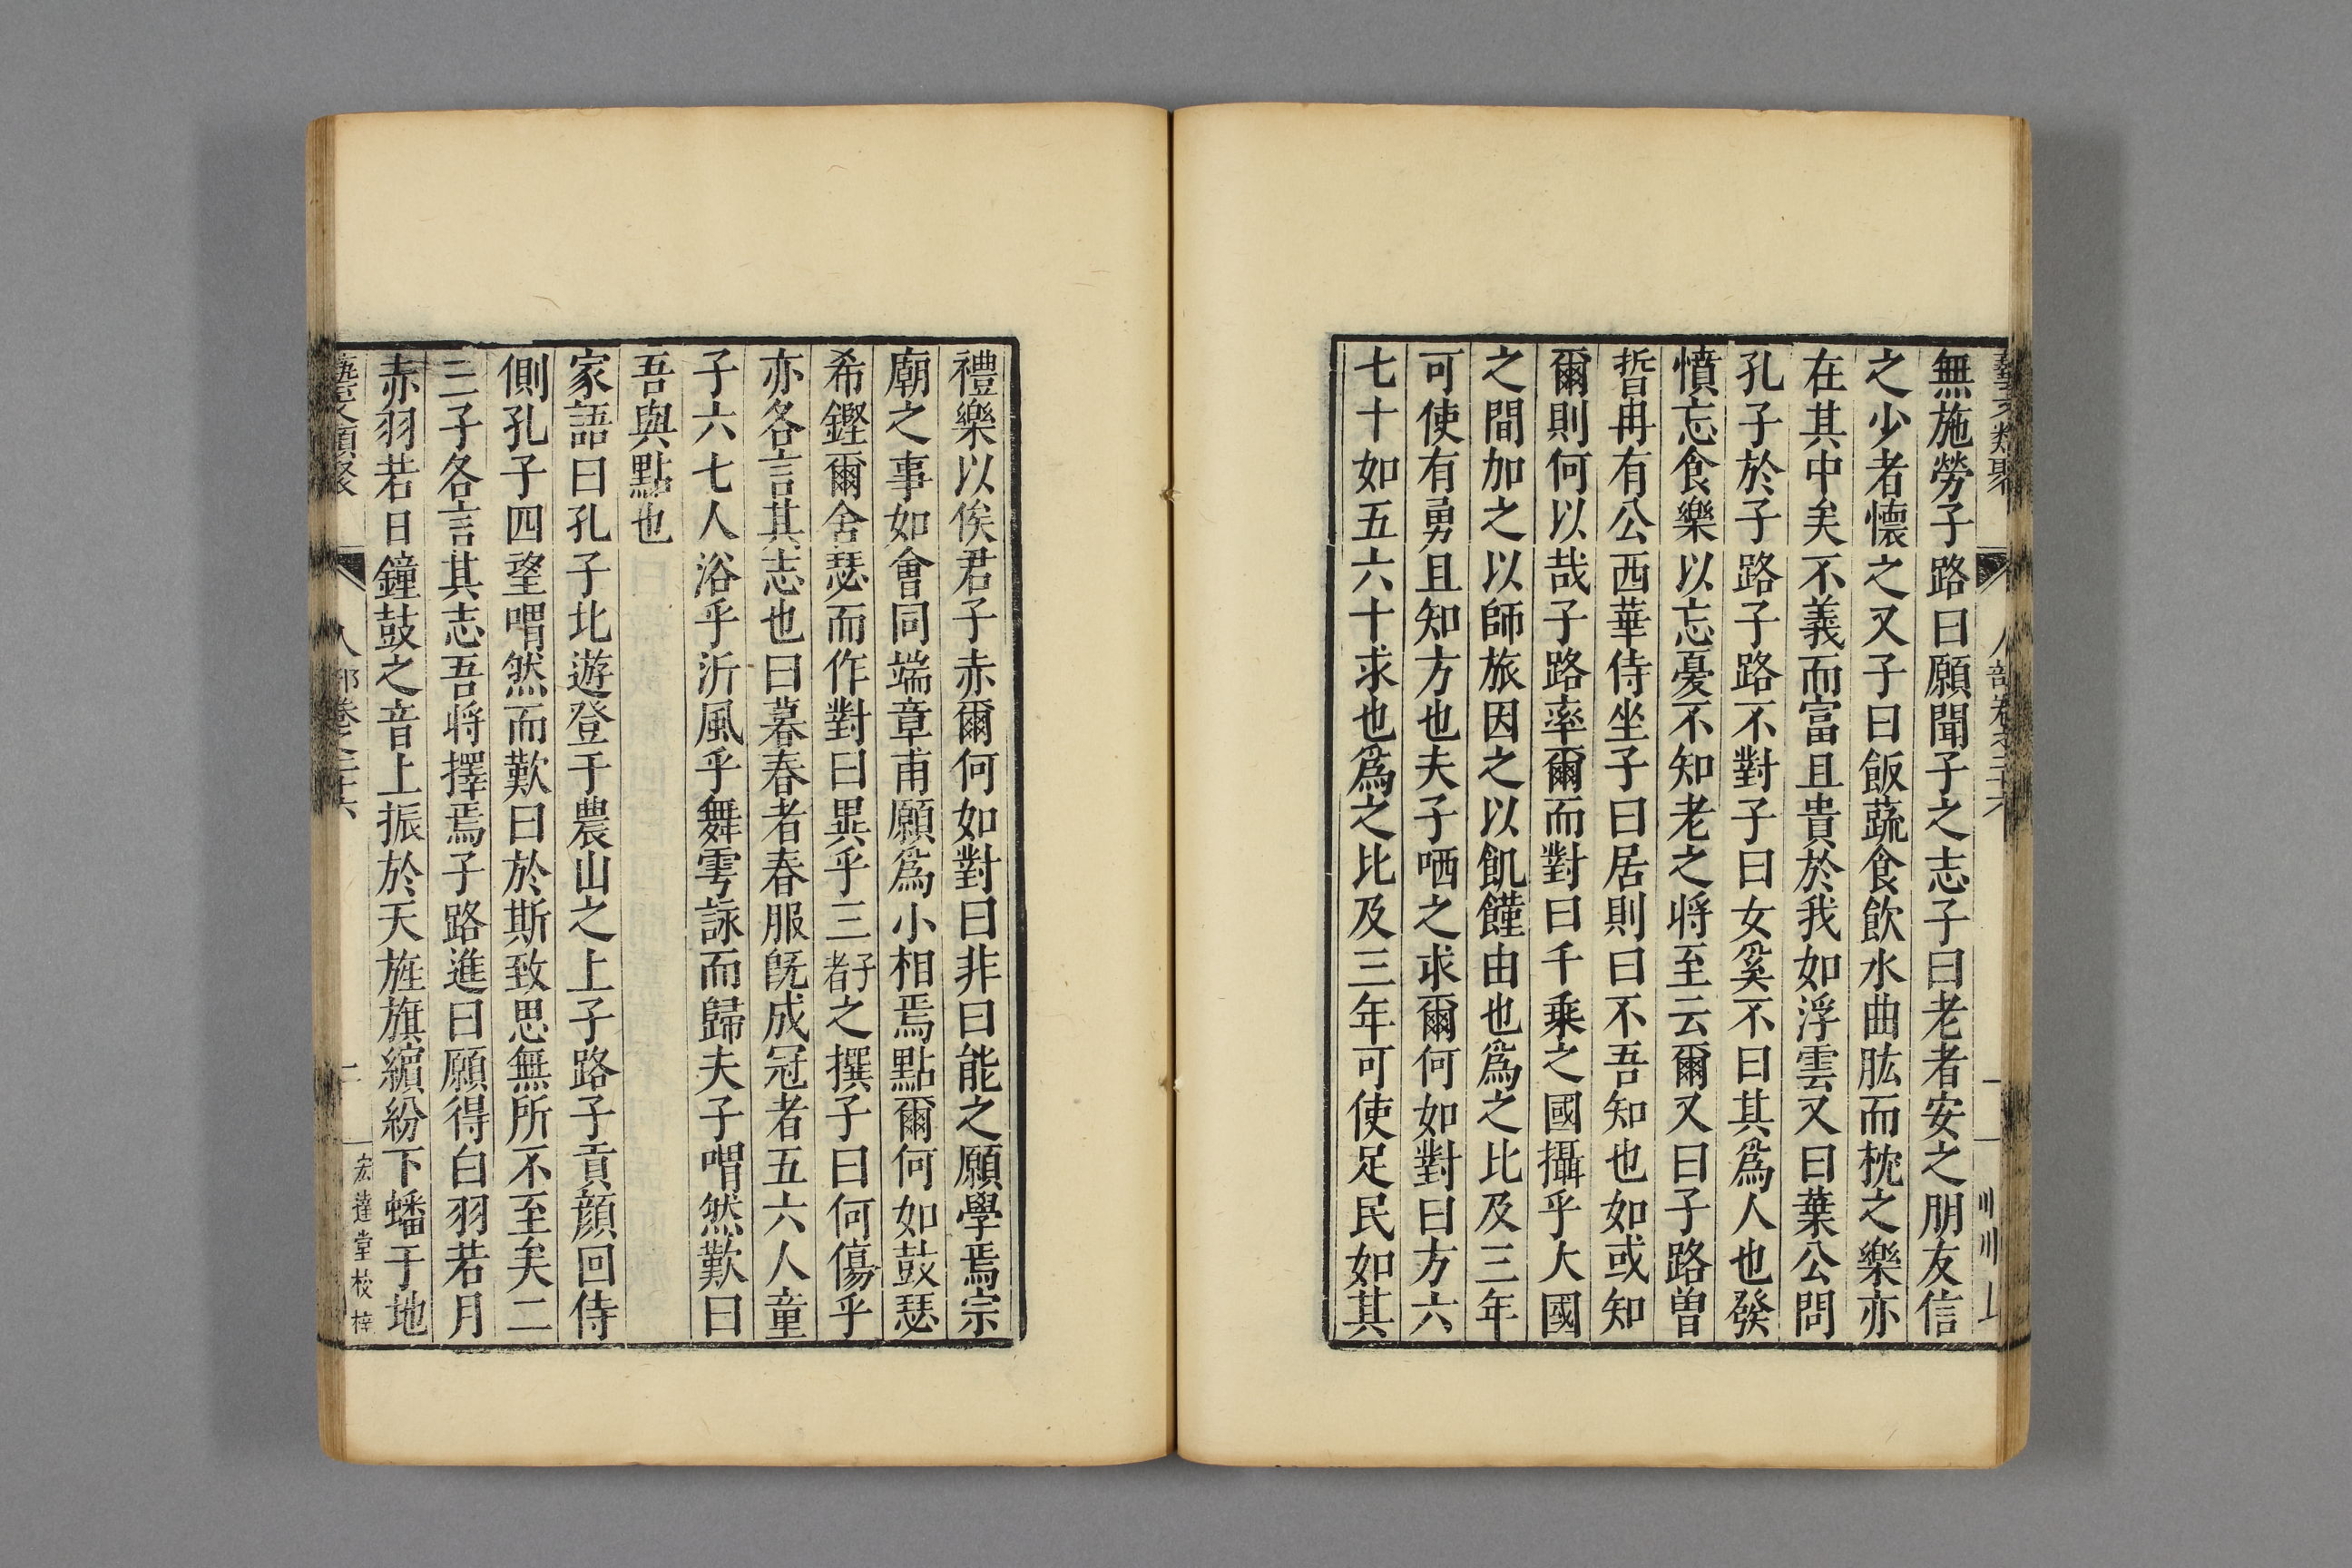 無施勞子路曰願聞子之志子曰老者安之朋友信
之少者懷之又子曰飯蔬食飲水曲肱而枕之樂亦
在其中矣不義而富且貴於我如浮雲又曰葉公問
孔子於子路子路不對子曰女奚不曰其爲人也發
憤忘食樂以忘憂不知老之將至云爾又曰子路曾
晳冉有公西華侍坐子曰居則曰不吾知也如或知
爾則何以哉子路率爾而對曰千乗之國攝乎大國
之間加之以師旅因之以飢饉由也爲之比及三年
可使有勇且知方也夫子哂之求爾何如對曰方六
七十如五六十求也爲之比及三年可使足民如其
禮樂以俟君子赤爾何如對曰非曰能之願學焉宗
廟之事如會同端章甫願爲小相焉點爾何如鼓瑟
希鏗爾舍瑟而作對曰異乎三子者之撰子曰何傷乎
亦各言其志也曰暮春者春服旣成冠者五六人童
子六七人浴乎沂風乎舞雩詠而歸夫子喟然歎曰
吾與點也
家語曰孔子北遊登于農山之上子路子貢顔回侍
側孔子四望喟然而歎曰於斯致思無所不至矣二
三子各言其志吾將擇焉子路進曰願得白羽若月
赤羽若日鐘鼓之音上振於天旌旗繽紛下蟠于地
藝文類聚
人部卷之二十六
二
宏達堂校梓